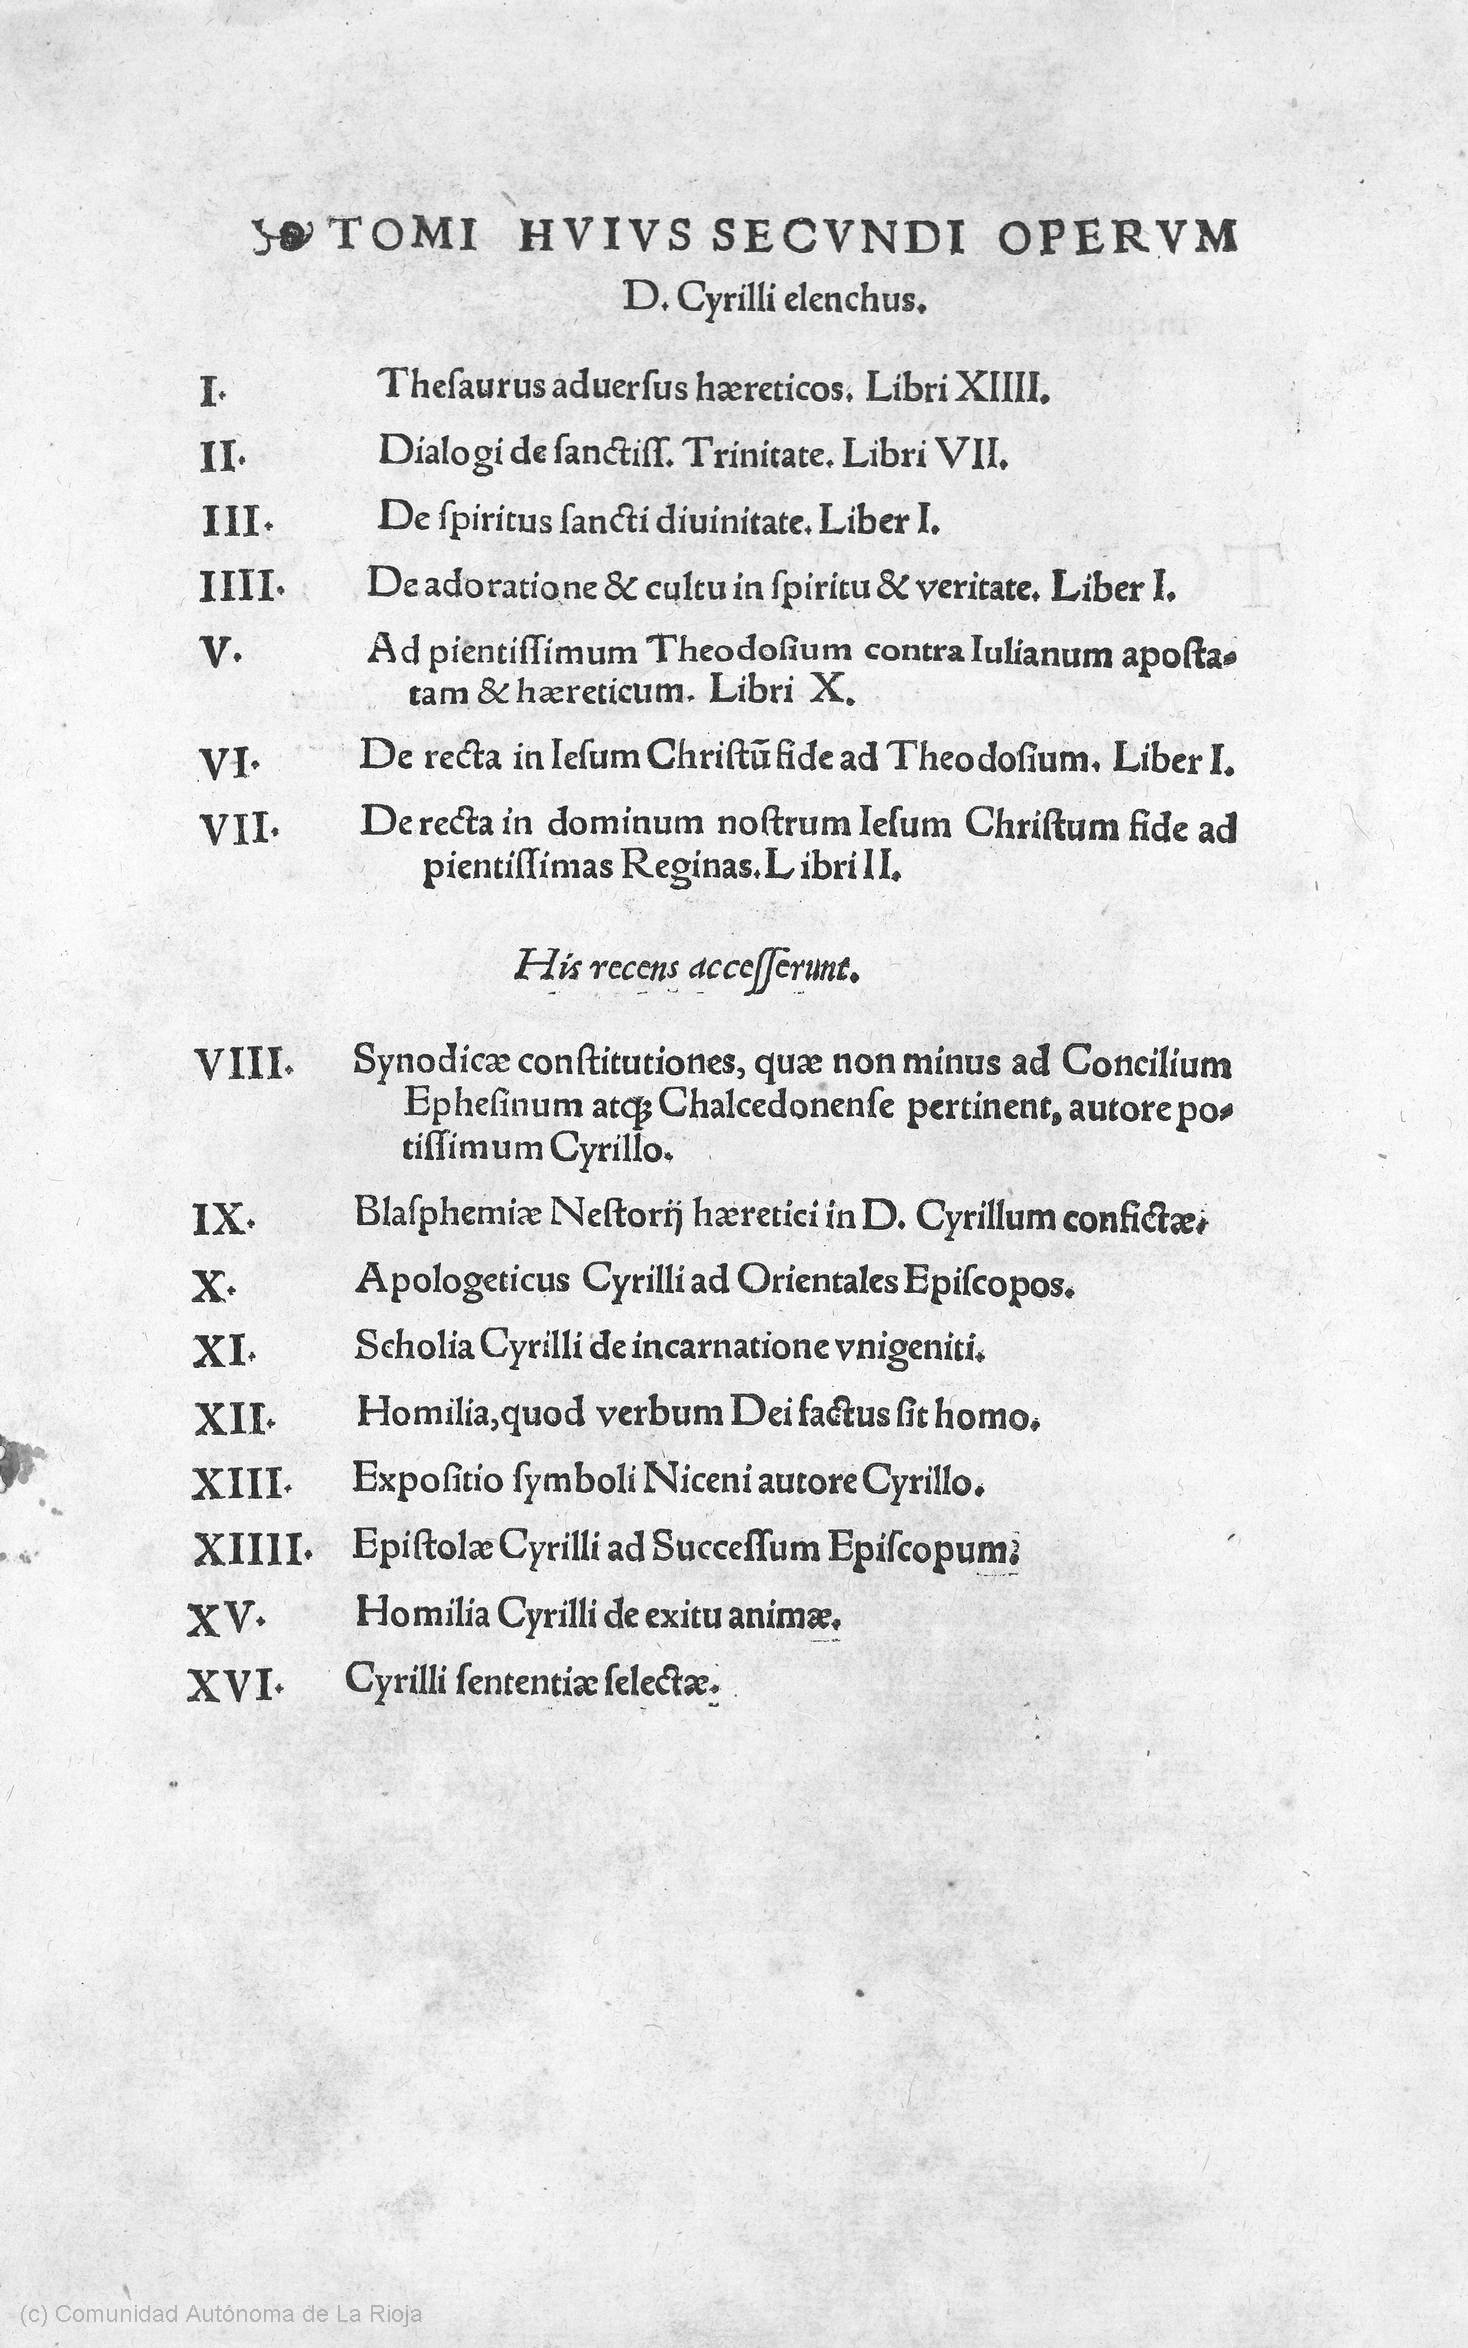 TOMI HVIVS SECVNDI OPERVM
D. Cyrilli elenchus.
I. Theſaurus aduerſus hæreticos. Libri XIIII.
II. Dialogi de ſanctiſſ. Trinitate. Libri VII.
III. De ſpiritus ſancti diuinitate. Liber I.
IIII. De adoratione & cultu in ſpiritu & veritate. Liber I.
V. Ad pientiſſimum Theodoſium contra Iulianum apoſta-
tam & hæreticum. Libri X.
VI. De recta in Ieſum Chriſtũ fide ad Theodoſium. Liber I.
VII. De recta in dominum noſtrum Ieſum Chriſtum fide ad
pientiſſimas Reginas. Libri II.
His recens acceſſerunt.
VIII. Synodicæ conſtitutiones, quæ non minus ad Concilium
Epheſinum atq; Chalcedonenſe pertinent, autore po-
tiſſimum Cyrillo.
IX. Blaſphemiæ Neſtorij hæretici in D. Cyrillum confictæ.
X. Apologeticus Cyrilli ad Orientales Epiſcopos.
XI. Scholia Cyrilli de incarnatione vnigeniti.
XII. Homilia, quod verbum Dei factus ſit homo.
XIII. Expoſitio ſymboli Niceni autore Cyrillo.
XIIII. Epiſtolæ Cyrilli ad Succeſſum Epiſcopum.
XV. Homilia Cyrilli de exitu animæ.
XVI. Cyrilli ſententiæ ſelectæ.
(c) Comunidad Autónoma de La Rioja